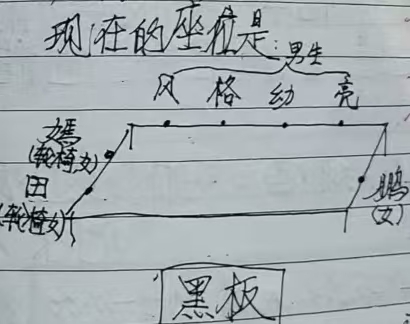 现在的座位是:
男生
风 格 幼 亮
嫣
(轮椅女)
田
(轮椅女)
鹏
(女)
黑板